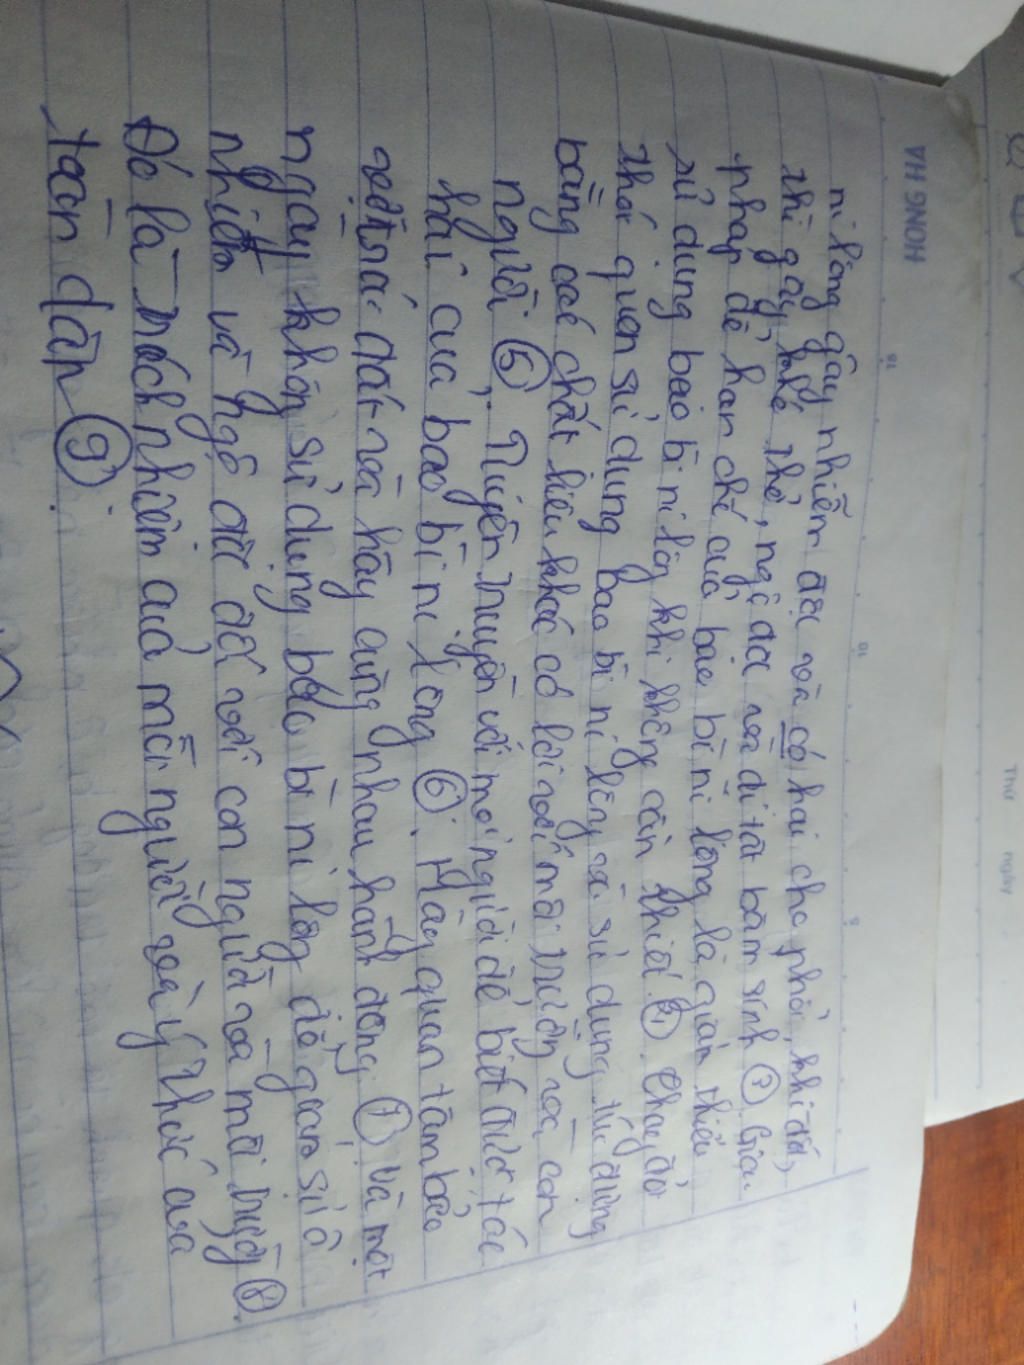 HONG HA
Thứ ngày
ni lông gây nhiễm độc và có hại cho phổi, khi đốt,
thì gây khó thở, ngộ độc và dị tật bẩm sinh ③. Giải
pháp để hạn chế của bao bì ni lông là giảm thiểu
sử dụng bao bì ni lông khi không cần thiết ④. Thay đổi
thói quen sử dụng bao bì ni lông và sử dụng túi đựng
bằng các chất liệu khác có lợi với môi trường và con
người ⑤. Tuyên truyền với mọi người để biết được tác
hại của bao bì ni lông ⑥. Hãy quan tâm bảo
vệ trái đất và hãy cùng nhau hành động ⑦ và một
ngày không sử dụng bao bì ni lông để giảm sự ô
nhiễm và ngộ độc đối với con người và môi trường ⑧.
Đó là trách nhiệm của mỗi người và ý thức của
toàn dân ⑨.